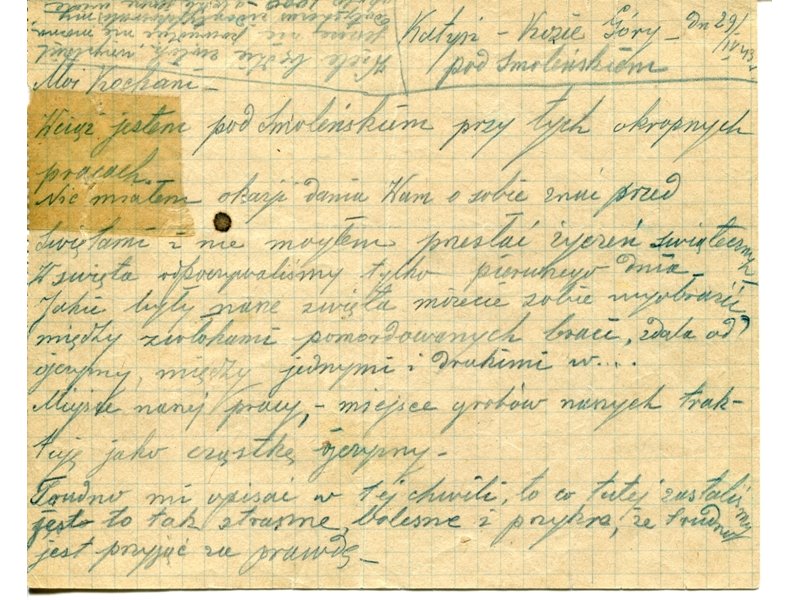 Katyń - Kozie Góry - dn 29/IV 43r
pod Smoleńskiem
Moi Kochani -
Wciąż jestem pod Smoleńskiem przy tych okropnych
pracach.
Nie miałem okazji dania Wam o sobie znać przed
Świętami i nie mogłem przesłać życzeń świątecznych
W święta odpoczywaliśmy tylko pierwszego dnia -
Jakie były nasze święta możecie sobie wyobrazić
między zwłokami pomordowanych braci, zdala od
ojczyzny, między jednymi i drukimi w....
Miejsce naszej pracy, - miejsce grobów naszych trak-
tuję jako cząstkę ojczyzny -
Trudno mi opisać w tej chwili, to co tutej zastaliśmy
jest to tak straszne, bolesne i przykre, że trudno
jest przyjąć za prawdę -